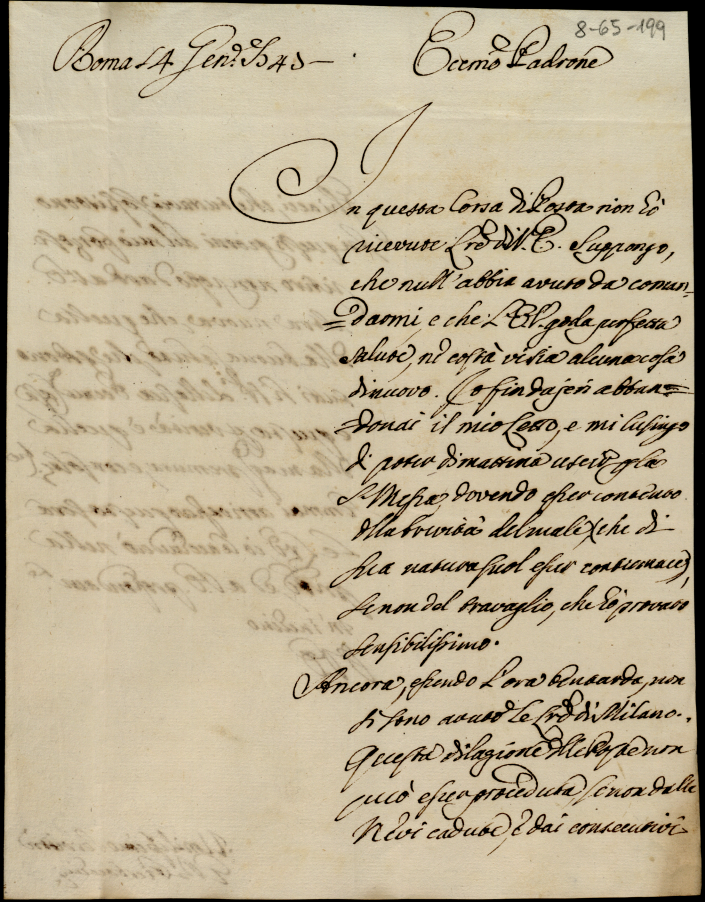 8-65-199
Roma 14 Gen.º 1745 —
Eccmo Padrone
In questa Corsa di Posta non hò
ricevute Lrē di V. E. Suppongo,
che null'abbia avuto da coman=
=darmi, e che L'E.V. goda perfetta
salute, nè costà visia alcuna cosa
di nuovo. Io fin da jeri abban=
=donai il mio Letto, e mi lusingo
di poter dimattina uscire p la
S. Messa, dovendo esser contento
dlla brevità del male, (che di
sua natura suol esser contumace)
se non del travaglio, che hò provato
sensibilissimo.
Ancora, essendo l'ora ben tarda, non
si sono avute le Lrē di Milano.
Questa dilazione dlle Poste non
può esser proceduta, se non dalle
Nevi cadute, e dai consecutivi